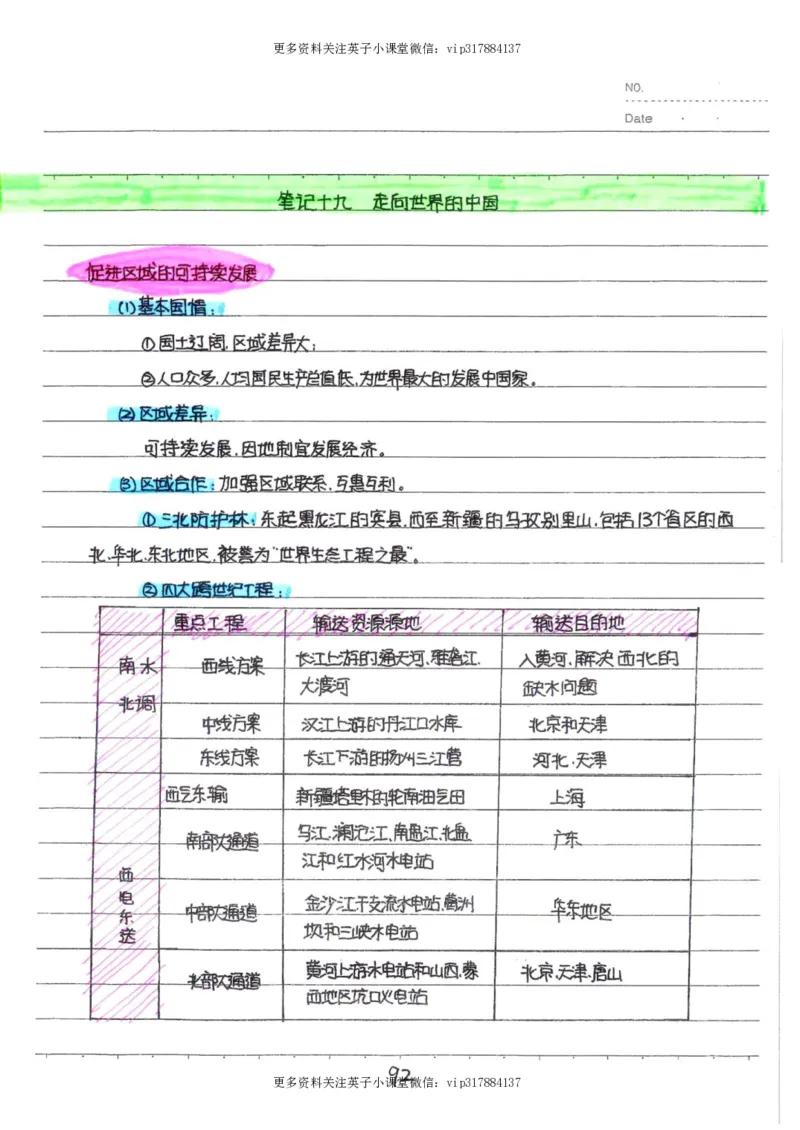 更多资料关注英子小课堂微信：vip317884137
NO.
Date
笔记十九 走向世界的中国
促进区域的可持续发展
(1)基本国情：
①国土辽阔，区域差异大；
②人口众多，人均国民生产总值低，为世界最大的发展中国家。
(2)区域差异：
可持续发展，因地制宜发展经济。
(3)区域合作：加强区域联系，互惠互利。
①三北防护林：东起黑龙江的宾县，西至新疆的乌孜别里山，包括13个省区的西
北、华北、东北地区，被誉为“世界生态工程之最”。
②四大跨世纪工程：
重点工程 输送资源源地 输送目的地
南水北调 西线方案 长江上游的通天河、雅砻江、 入黄河，解决西北的
大渡河 缺水问题
中线方案 汉江上游的丹江口水库 北京和天津
东线方案 长江下游的扬州三江营 河北、天津
西气东输 新疆塔里木的轮南油气田 上海
西电东送 南部大通道 乌江、澜沧江、南盘江、北盘 广东
江和红水河水电站
中部大通道 金沙江干支流水电站、葛洲 华东地区
坝和三峡水电站
北部大通道 黄河上游水电站和山西、蒙 北京、天津、唐山
西地区坑口火电站
92
更多资料关注英子小课堂微信：vip317884137